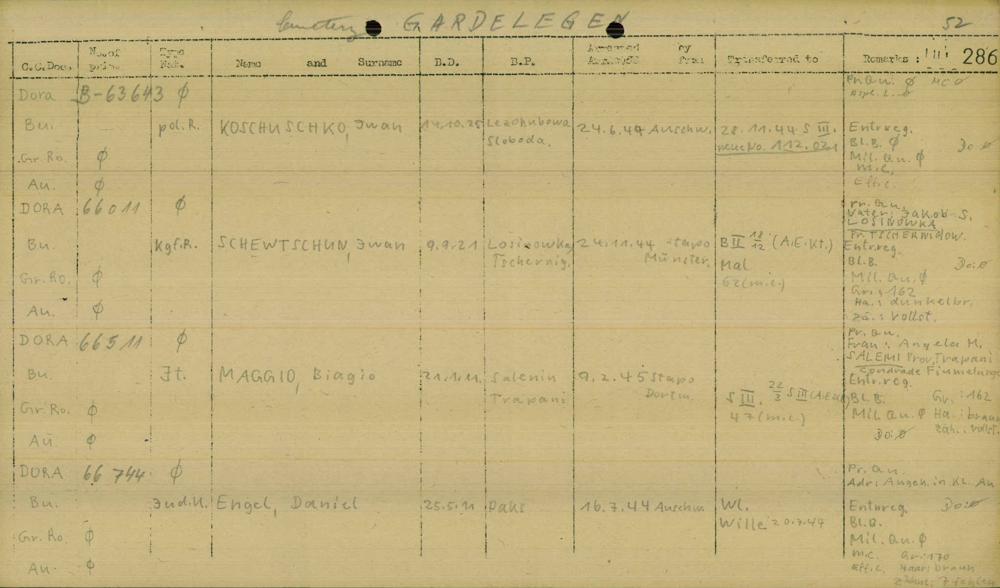 Cemetery GARDELEGEN 52
C.C.Doc. No. of Type Nat. Name and Surname B.D. B.P. Arrested by Transferred to Remarks : 286
Dora B-63643 Ø Pr.Qu. Ø
Bu. pol.R. KOSCHUSCHKO, Iwan 14.10.25 Lezohubowa Sloboda. 24.6.44 Auschw. 28.11.44 S III. Entr.reg.
neue No. Bl.B. Ø
Gr.Ro. Ø Mil. Qu. Ø Do:Ø
M.C.
Au. Ø Effic.
DORA 66011 Ø Pr. Qu.
Vater: Jakob S.
LOSINOWKA
Pr. TSCHERNIGOW.
Bu. Kgf.R. SCHEWTSCHUN, Iwan 9.9.21 Losinowka Tschernig. 24.11.44 Stapo Münster. B II 18/12 (A.E.Kt.) Entr.reg.
Mal Bl.B. Do:Ø
Gr.Ro. Ø 62 (m.c.) Mil. Qu. Ø
Gr.: 162
Au. Ø Ha.: dunkelbr.
Zä.: vollst.
DORA 66511 Ø Pr. Qu.
Frau: Angela M.
SALEMI Prov. Trapani
Bu. It. MAGGIO, Biagio 21.1.11. Salenin Trapani 9.2.45 Stapo Dortm. Entr.reg.
S III. 22/3 S III Bl.B. Gr.: 162
Gr.Ro. Ø 47 (m.c.) Mil. Qu. Ø Ha.: braun
Zäh.: vollst.
Au. Ø Do:Ø
DORA 66744 Ø Pr. Qu.
Adr: Angeh. in KL. Au
Bu. Jud.U. Engel, Daniel 25.5.11 Paks 16.7.44 Auschw. Wl. Entr.reg. Do:Ø
Wille 20.7.44 Bl.B.
Gr.Ro. Ø Mil. Qu. Ø
M.C. Gr: 170
Au. Ø Effic. Haar: braun